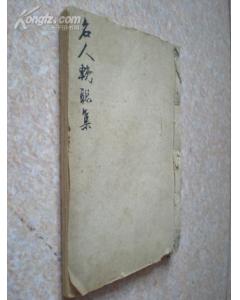 Kongfz.com
名人輓聯集